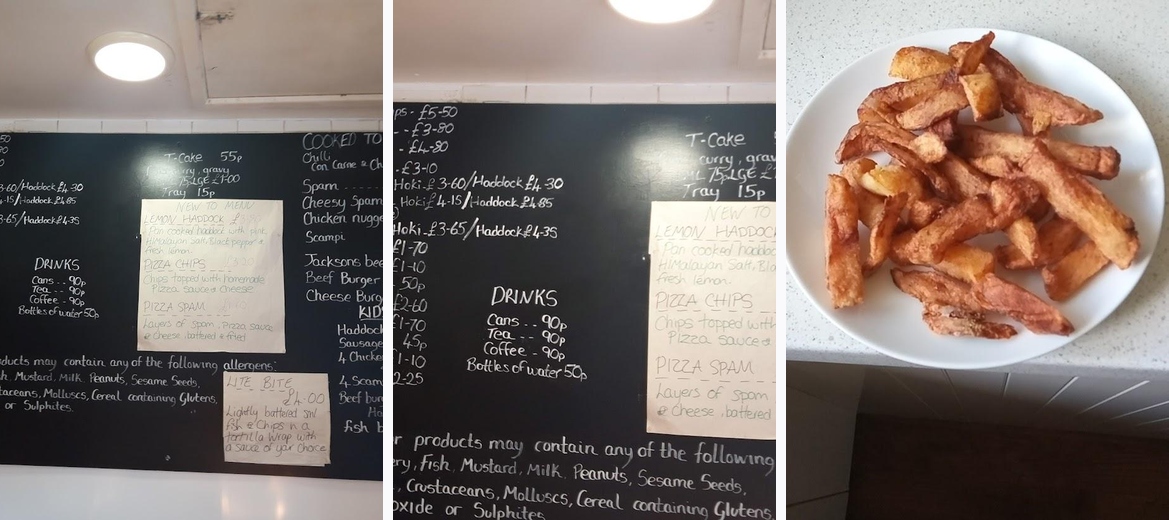 50
80
T-Cake 55p
curry, gravy
75p LGE £1-00
Tray 15p
3-60/Haddock £4-30
4-15/Haddock £4.85
3-65/Haddock £4-35
NEW TO MENU
LEMON HADDOCK £
Pan cooked haddock with pink
Himalayan Salt, Black pepper &
fresh lemon.
PIZZA CHIPS
Chips topped with homemade
Pizza sauce & Cheese
PIZZA SPAM
Layers of spam, Pizza sauce
& Cheese, battered & fried
DRINKS
Cans -- 90p
Tea -- 90p
Coffee - 90p
Bottles of water 50p
COOKED TO
Chilli
Con Carne & Ch
Spam
Cheesy Spam
Chicken nugge
Scampi
Jacksons bee
Beef Burger
Cheese Burg
KID
Haddock
Sausage
4 Chicke
4 Scam
Beef bur
fish b
ducts may contain any of the following allergens:
h, Mustard, Milk, Peanuts, Sesame Seeds,
taceans, Molluscs, Cereal containing Glutens,
or Sulphites.
LITE BITE
£4.00
Lightly battered sml
fish & Chips in a
tortilla wrap with
a sauce of your Choice
ps- £5-50
-- £3-80
- £4-80
-£3-10
Hoki-£3-60/Haddock £4-30
Hoki £4-15/Haddock £4.85
Hoki-£3-65/Haddock £4-35
£1-70
£1-10
50p
£2-60
£1-70
45p
£1-10
2-25
T-Cake
curry, grav
75p LGE £1
Tray 15p
DRINKS
Cans -- 90p
Tea -- 90p
Coffee - 90p
Bottles of water 50p
NEW TO
LEMON HADDOCK
Pan cooked haddock
Himalayan Salt, Bla
fresh lemon.
PIZZA CHIPS
Chips topped with
Pizza sauce &
PIZZA SPAM
Layers of spam
& Cheese, battered
r products may contain any of the following
ery, Fish, Mustard, Milk, Peanuts, Sesame Seeds,
, Crustaceans, Molluscs, Cereal containing Glutens,
oxide or Sulphites